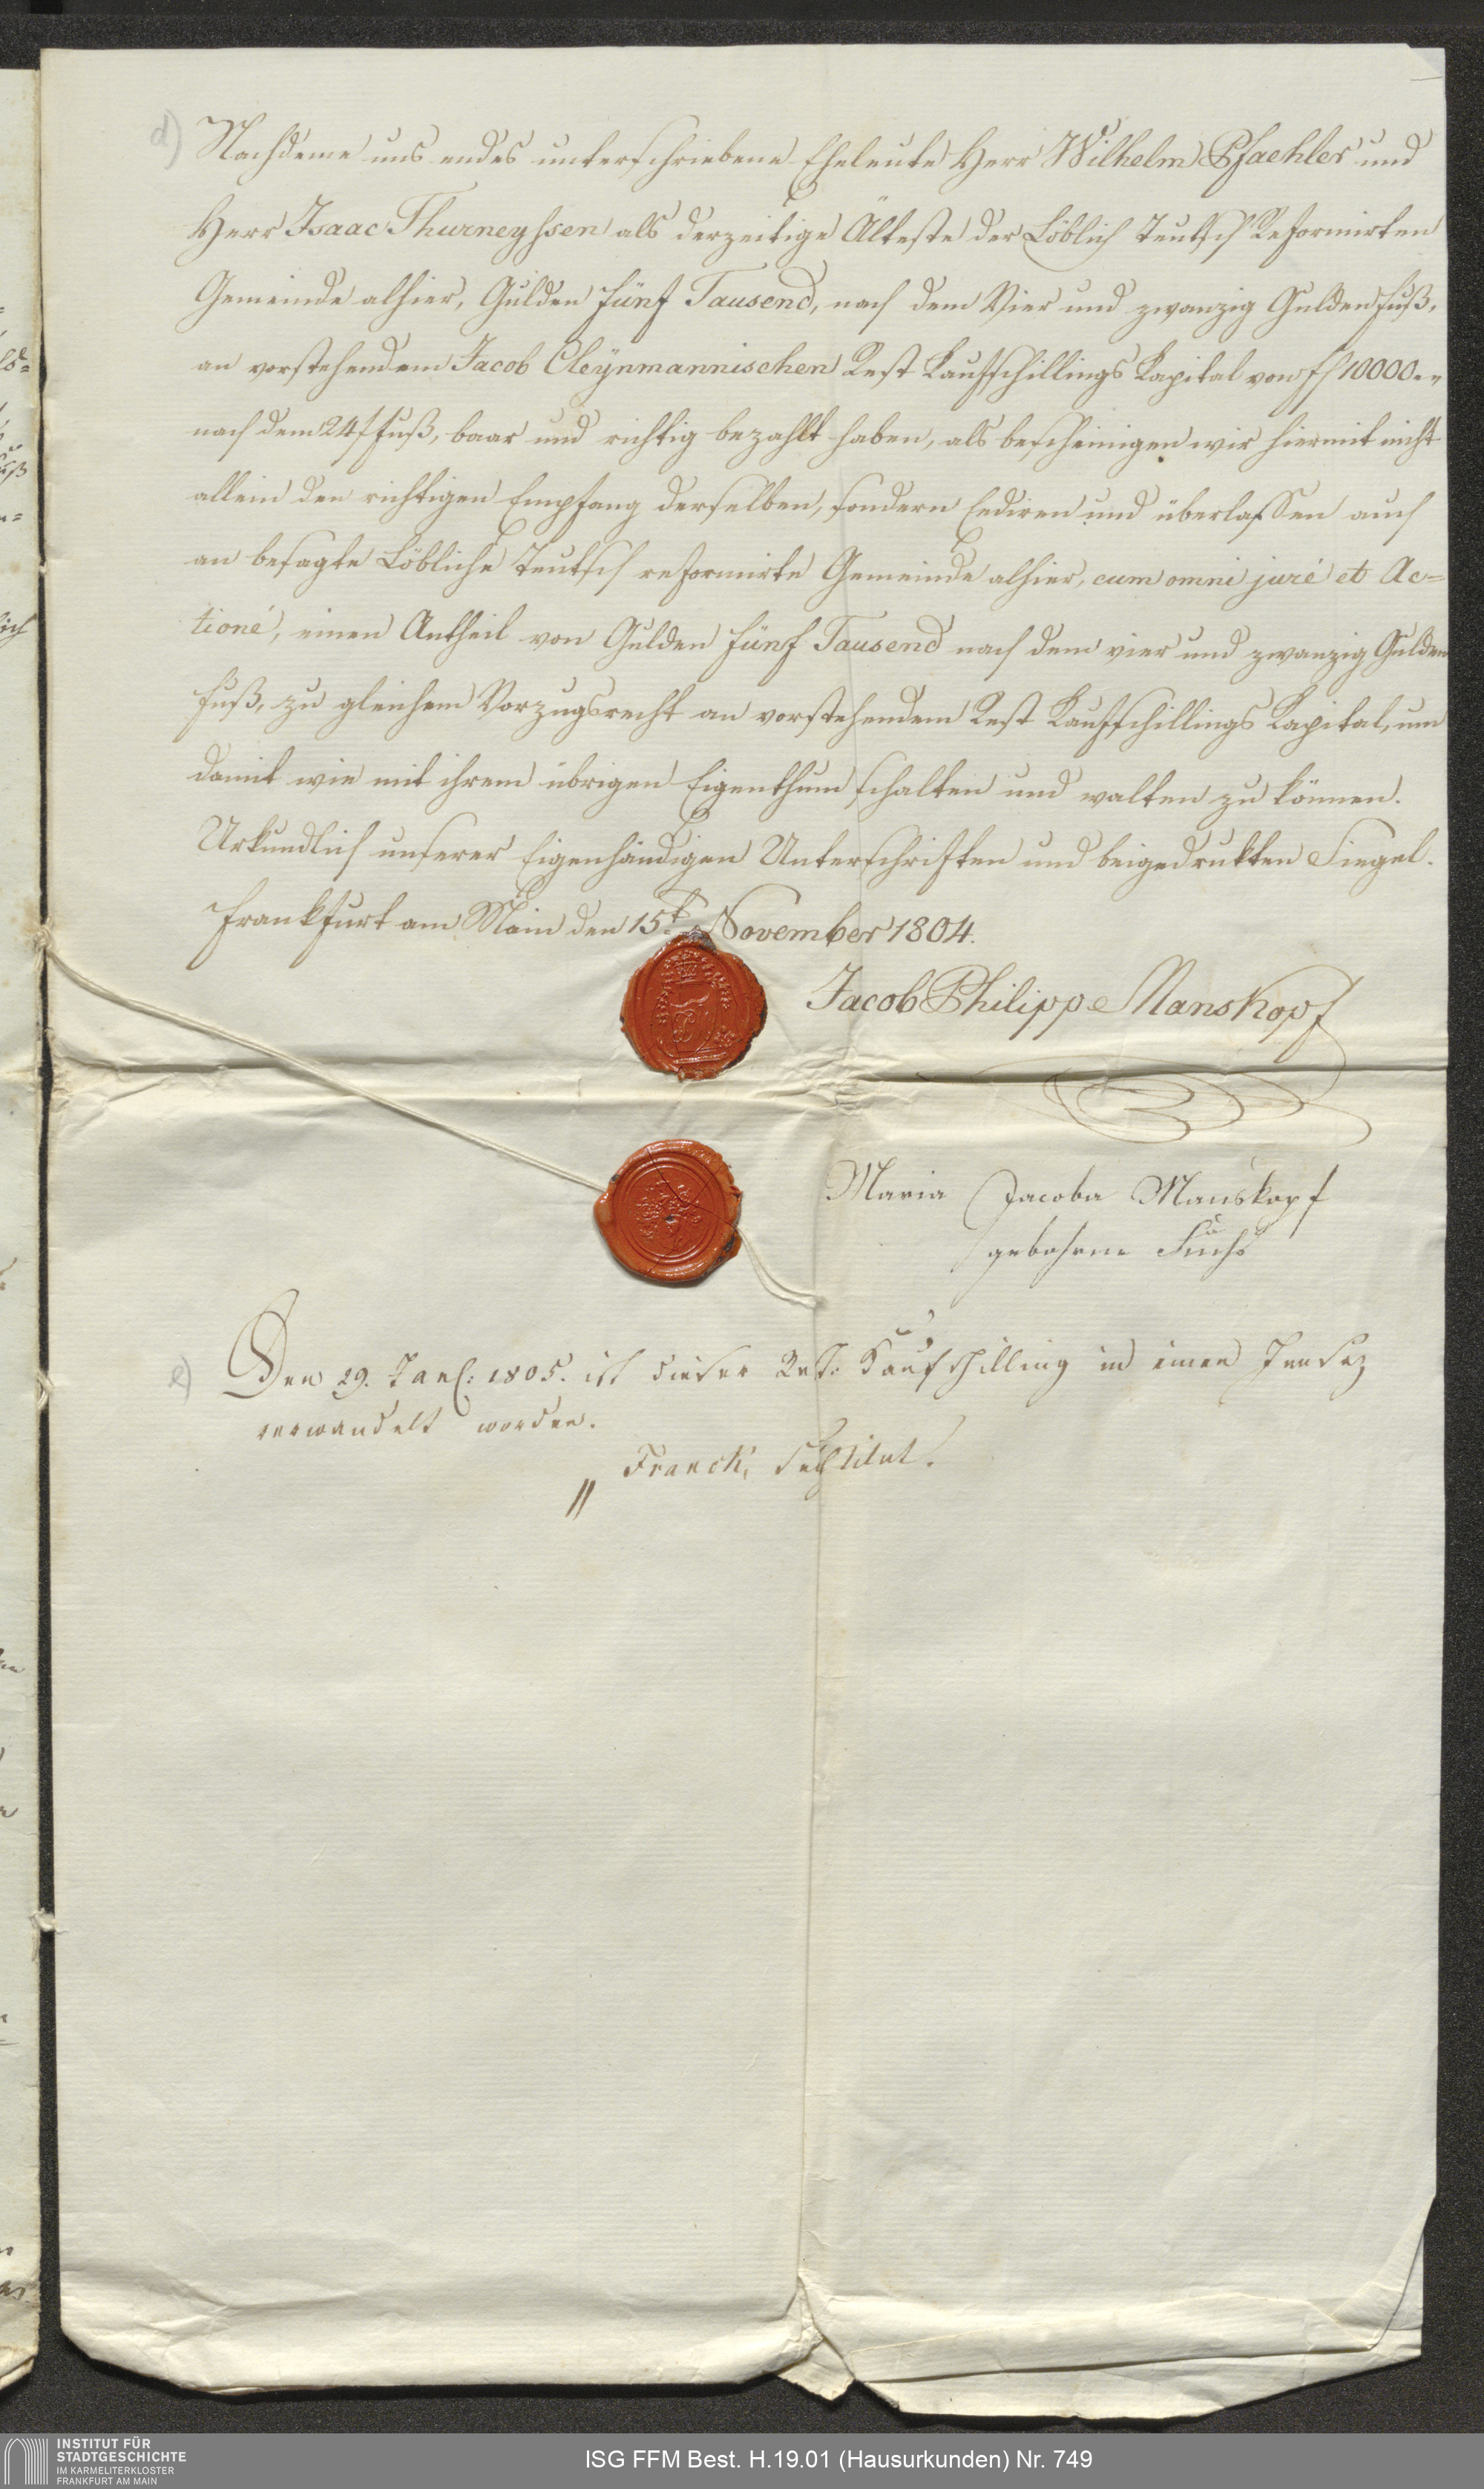 d) Nachdeme uns endes unterschriebene Eheleute Herr Wilhelm Pfaehler und
Herr Isaac Thurneyssen als derzeitige Älteste der Löblich Teutsch Reformirten
Gemeinde alhier, Gulden fünf Tausend, nach dem Vier und zwanzig Gulden fuß,
an vorstehendem Jacob Cleÿnmannischen Rest Kaufschillings Kapital von f 10000.„
nach dem 24 f fuß, baar und richtig bezahlt haben, als bescheinigen wir hiermit nicht
allein den richtigen Empfang derselben, sondern Cediren und überlassen auch
an besagte Löbliche Teutsch reformirte Gemeinde alhier, cum omni juré et Ac=
tioné, einen Antheil von Gulden fünf Tausend nach dem vier und zwanzig Gulden
fuß, zu gleichem Vorzugsrecht an vorstehendem Rest Kaufschillings Kapital, um
damit wie mit ihrem übrigen Eigenthum schalten und walten zu können.
Urkundlich unserer Eigenhändigen Unterschriften und beigedrukten Siegel.
Frankfurt am Main den 15t November 1804.
Jacob Philipp Manskopf
Maria Jacoba Manskopf
gebohrne Fuchs
e) Den 29. Jan: 1805. ist dieser Rest Kaufschilling in einen Insaz
verwandelt worden.
Franck, Substitut.
INSTITUT FÜR
STADTGESCHICHTE
IM KARMELITERKLOSTER
FRANKFURT AM MAIN
ISG FFM Best. H.19.01 (Hausurkunden) Nr. 749